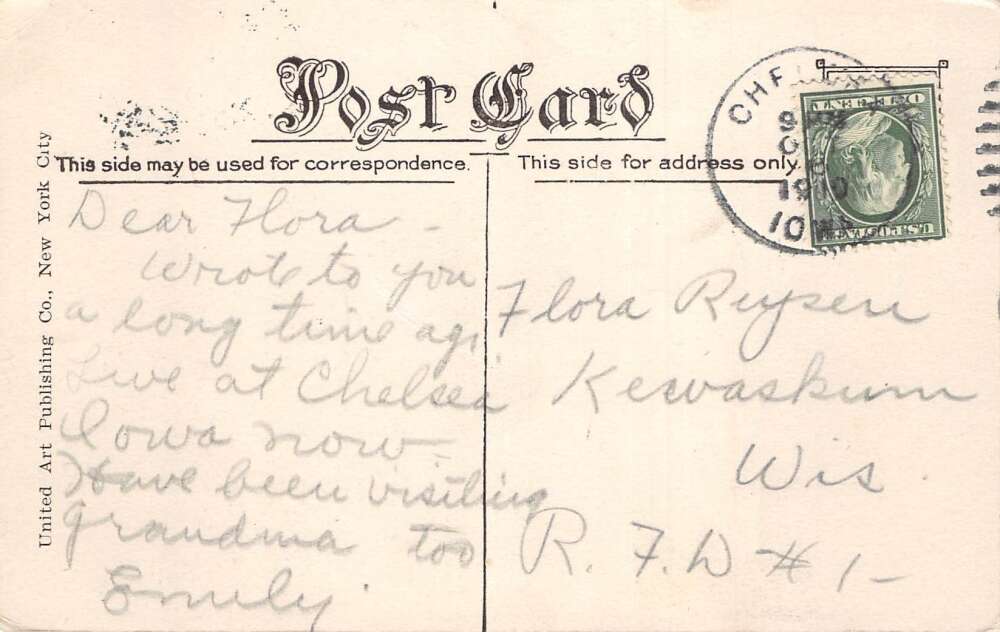 Post Card
This side may be used for correspondence.
This side for address only.
United Art Publishing Co., New York City
Dear Flora -
Wrote to you
a long time ago
Live at Chelsea
Iowa now -
Have been visiting
grandma too
Emily
Flora Ruysen
Kewaskum
Wis.
R. F. D # 1-
1910
IOWA
U.S. POSTAGE